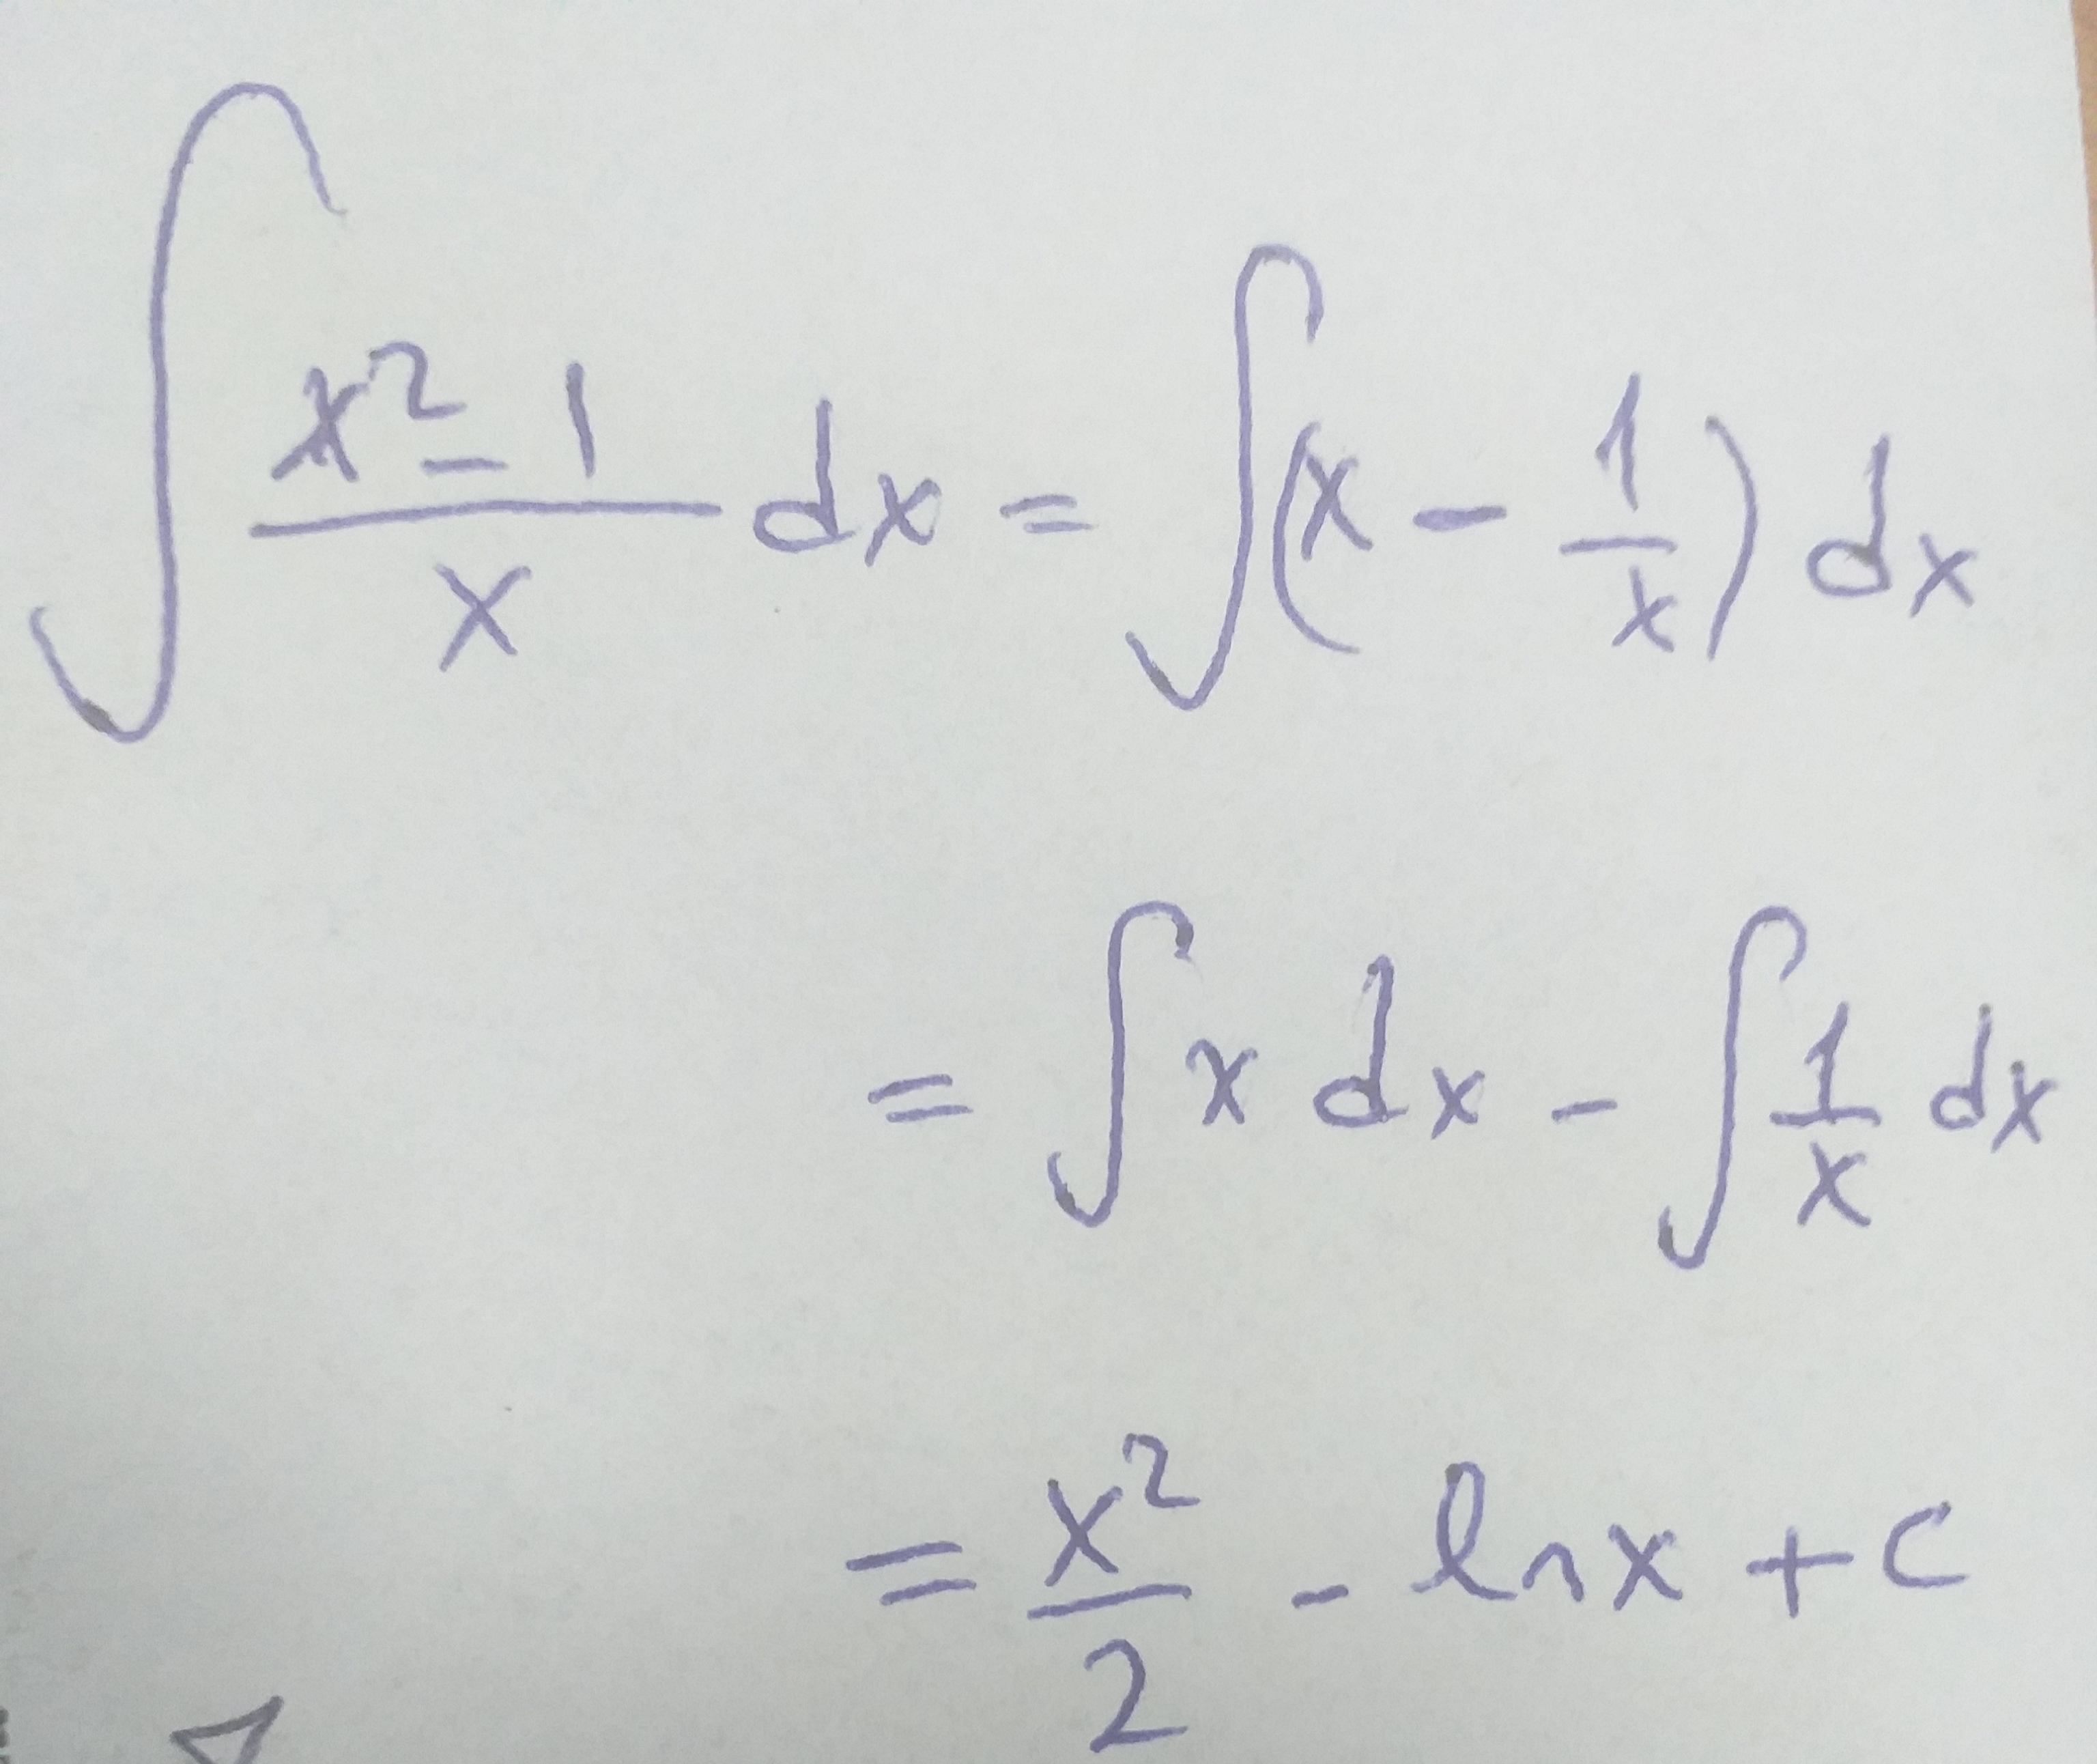 ∫ (x² - 1)/x dx = ∫(x - 1/x) dx
= ∫ x dx - ∫ 1/x dx
= x²/2 - ln x + c